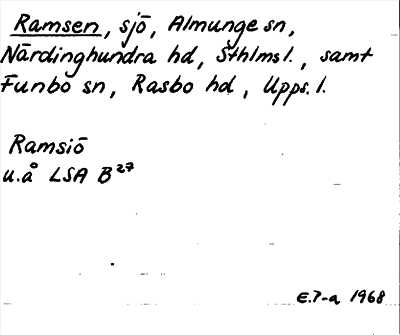 Ramsen, sjö, Almunge sn,
Närdinghundra hd, Sthlms l., samt
Funbo sn, Rasbo hd, Upps. l.
Ramsiö
u.å LSA B 27
E.T-a 1968